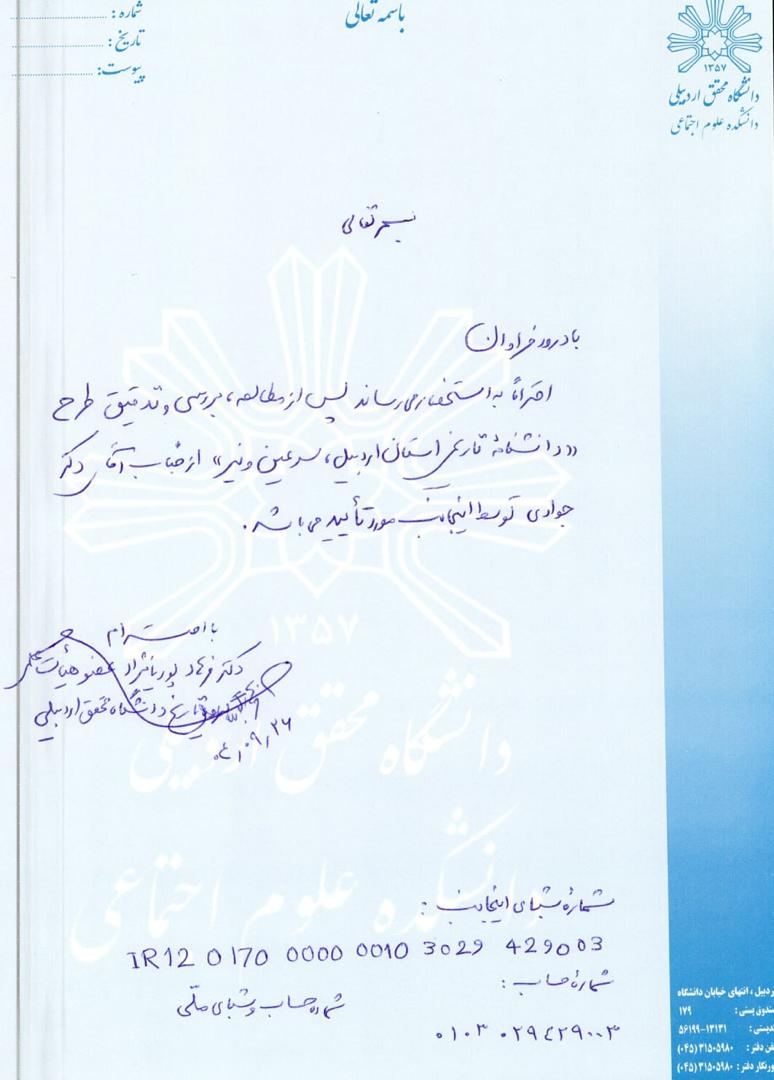 باسمه تعالی
شماره :
تاریخ :
پیوست:
۱۳۵۷
دانشگاه محقق اردبیلی
دانشکده علوم اجتماعی
بسمه تعالی
با درود فراوان
احتراماً به استحضار می‌رساند پس از مطالعه، بررسی و تدقیق طرح
«دانشنامهٔ تاریخی استان اردبیل، سرعین و نیر» از جناب آقای دکتر
جوادی توسط اینجانب مورد تأیید می باشد.
با احترام
دکتر فرهاد پوریانژاد عضو هیأت علمی
تاریخ دانشگاه محقق اردبیلی
۰۴/۰۹/۲۶
۱۳۵۷
دانشگاه محقق اردبیلی
دانشکده علوم اجتماعی
شمارهٔ شبای اینجانب :
IR12 0170 0000 0010 3029 429003
شمارهٔ حساب :
شماره حساب و شبای ملّی
۰۱۰۳۰۲۹۴۲۹۰۰۳
اردبیل ، انتهای خیابان دانشگاه
صندوق پستی : ۱۷۹
کدپستی : ۱۳۱۳۱-۵۶۱۹۹
تلفن دفتر : ۳۱۵۰۵۹۸۰ (۰۴۵)
دورنگار دفتر : ۳۱۵۰۵۹۸۰ (۰۴۵)